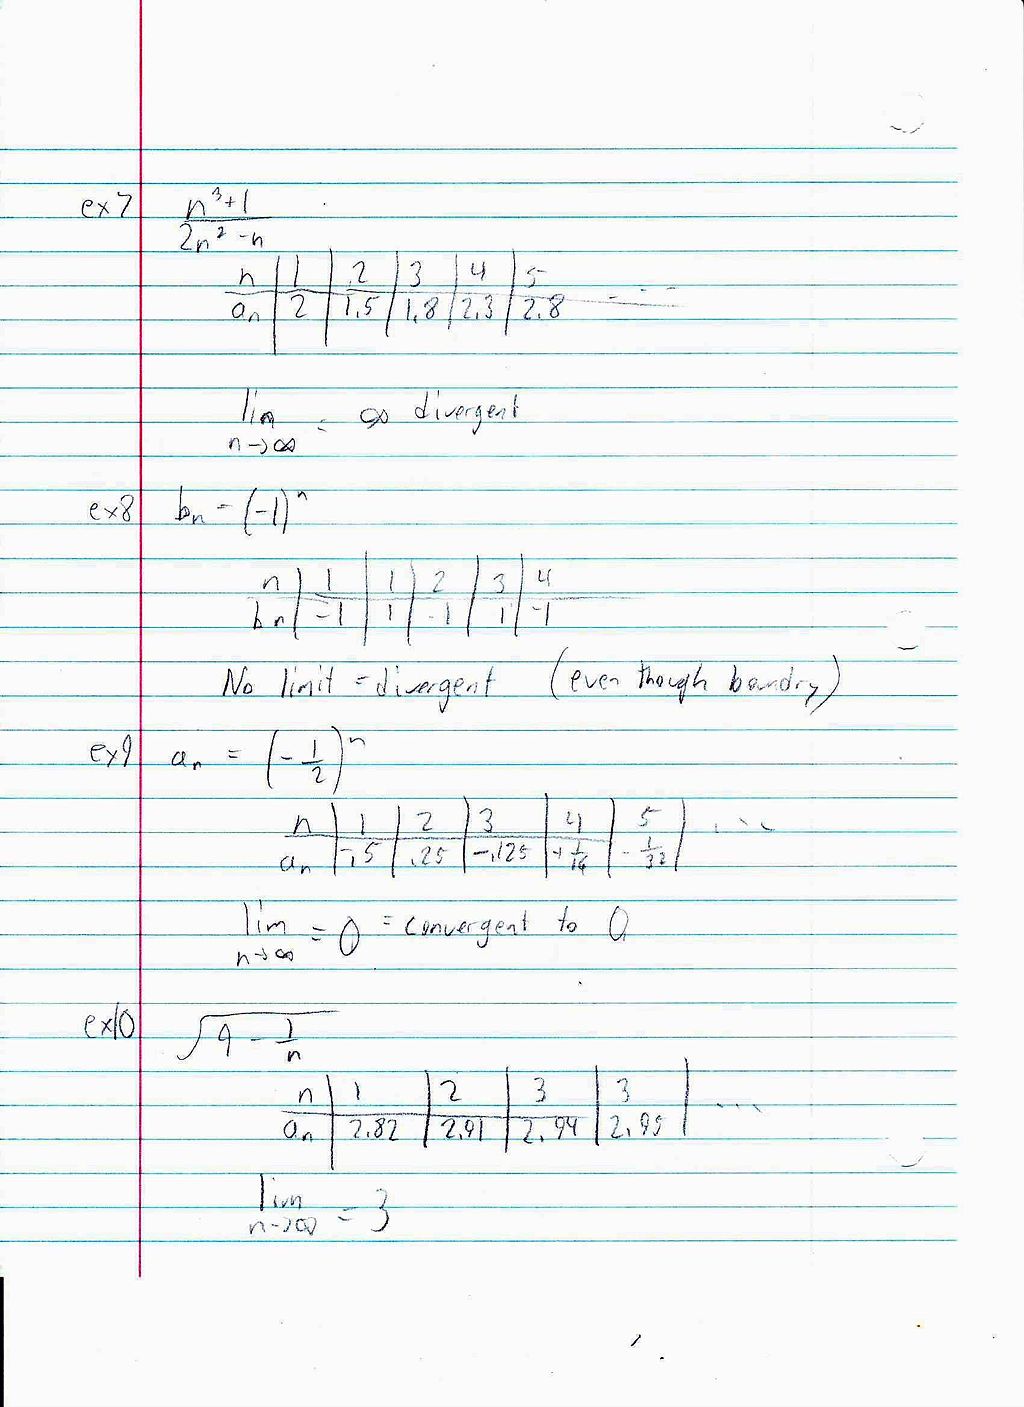 ex7 n³+1
2n² -n
n | 1 | 2 | 3 | 4 | 5
aₙ | 2 | 1.5 | 1.8 | 2.3 | 2.8 ---
lim = ∞ divergent
n→∞
ex8 bₙ = (-1)ⁿ
n | 1 | 1 | 2 | 3 | 4
bn | -1 | 1 | -1 | 1 | -1
No limit = divergent (even though boundry)
ex9 aₙ = (-1/2)ⁿ
n | 1 | 2 | 3 | 4 | 5 | ...
aₙ | -.5 | .25 | -.125 | +1/16 | -1/32 |
lim = 0 = convergent to 0
n→∞
ex10 √(9 - 1/n)
n | 1 | 2 | 3 | 3 | ...
aₙ | 2.82 | 2.91 | 2.94 | 2.95 |
lim = 3
n→∞